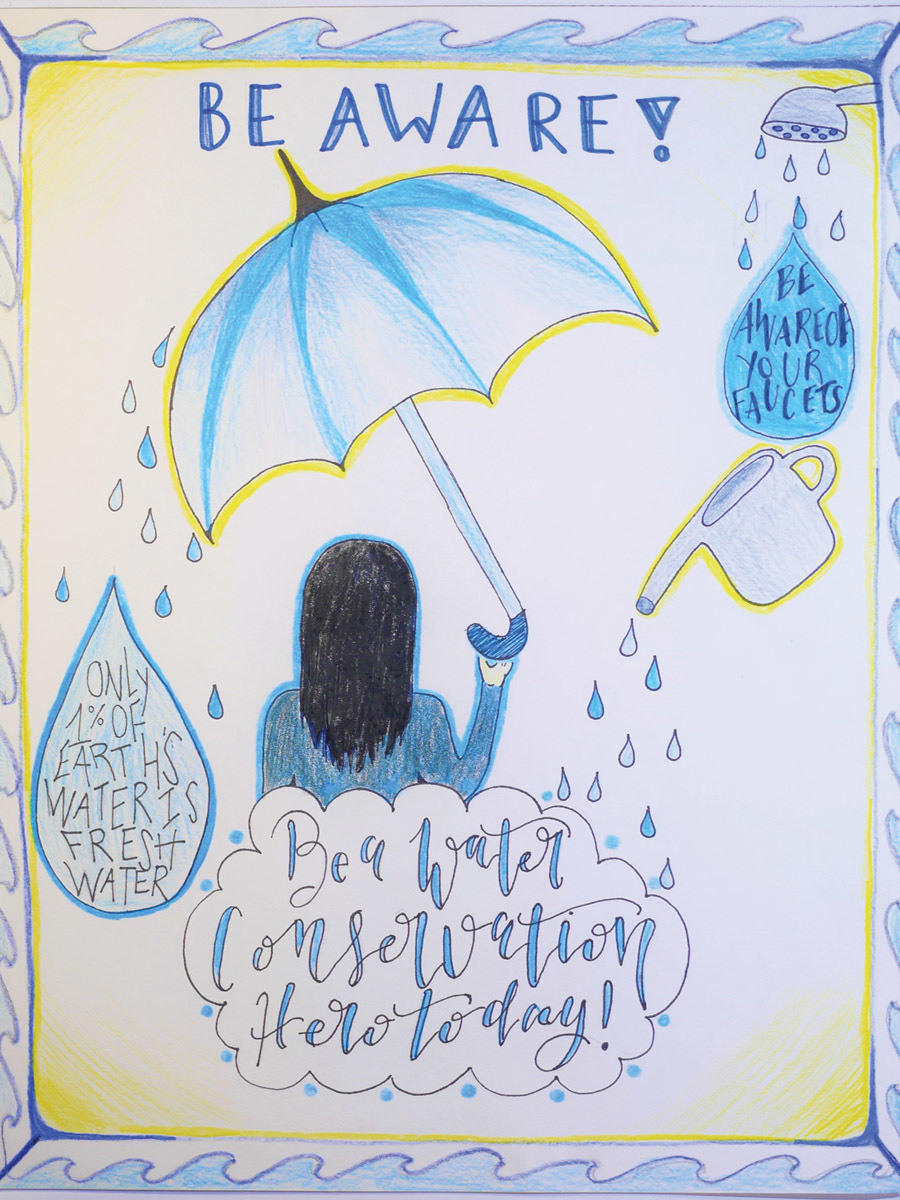 BE AWARE!
BE
AWARE OF
YOUR
FAUCETS
ONLY
1% OF
EARTH'S
WATER IS
FRESH
WATER
Be a Water
Conservation
Hero today!